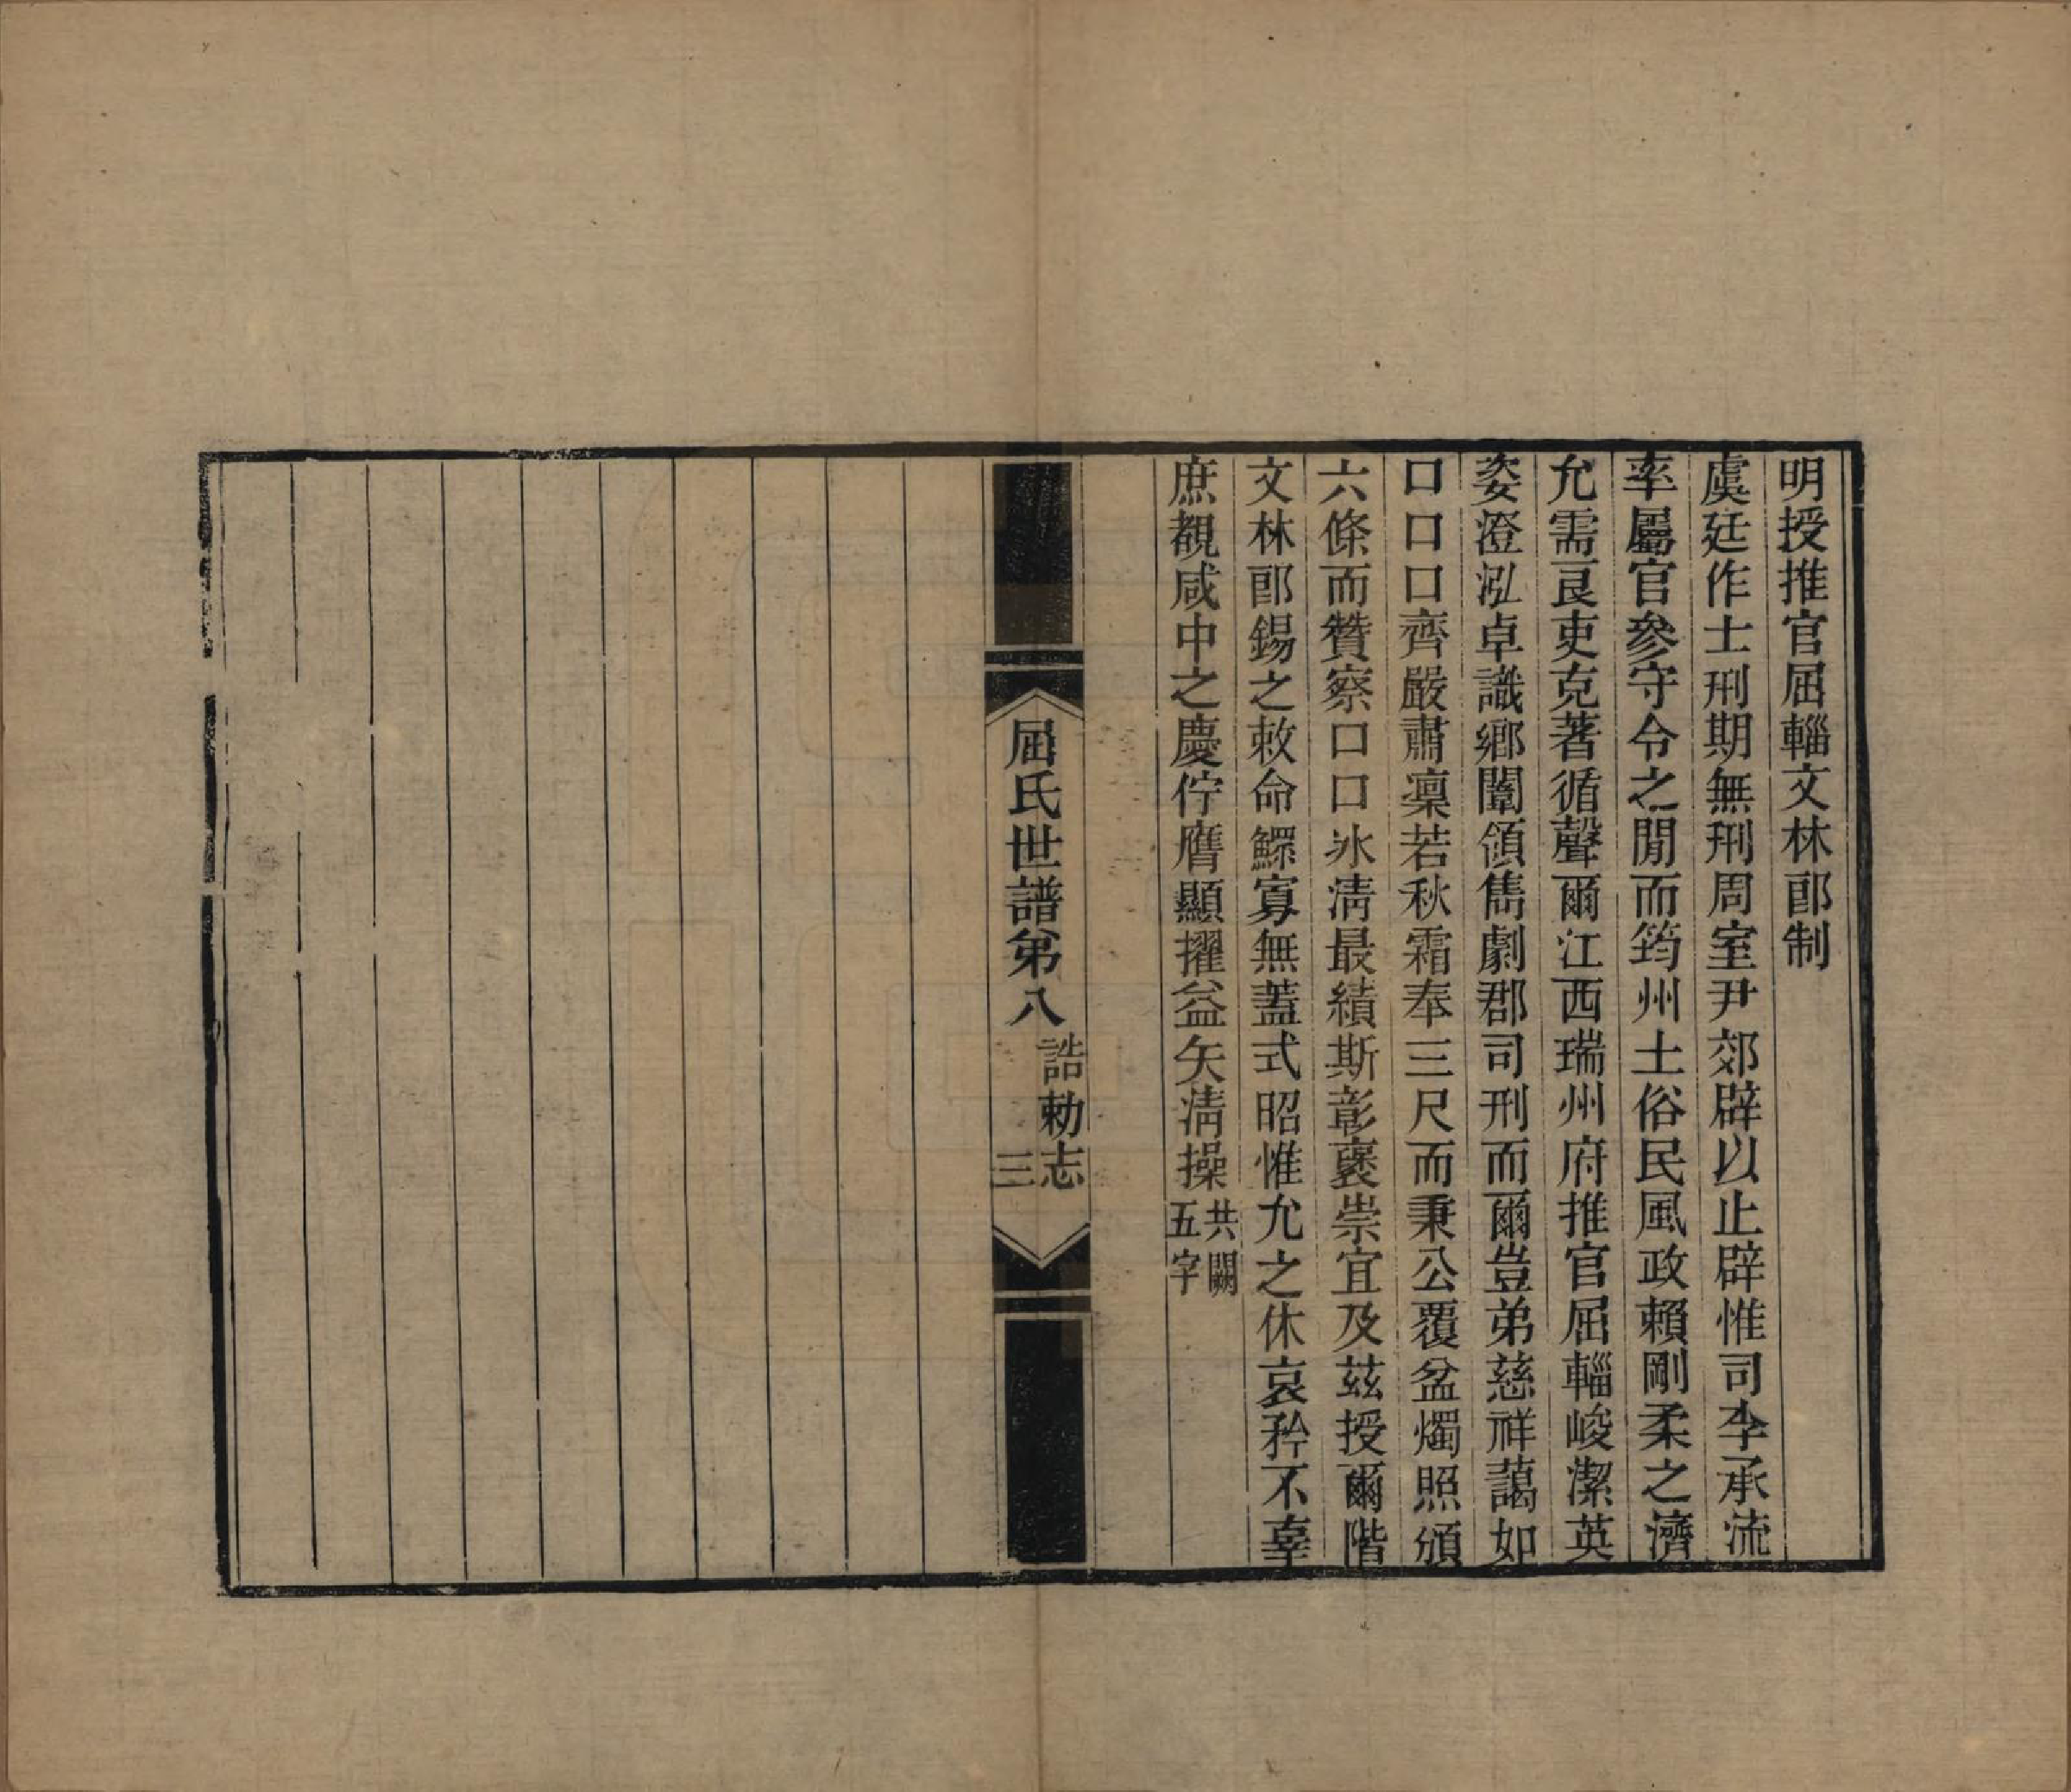 明授推官屈輜文林郎制
虞廷作士刑期無刑周室尹郊辟以止辟惟司李承流
率屬官參守令之閒而筠州土俗民風政賴剛柔之濟
允需良吏克著循聲爾江西瑞州府推官屈輜峻潔英
姿澄泓卓識鄉闈領雋劇郡司刑而爾豈弟慈祥藹如
口口口齊嚴肅凜若秋霜奉三尺而秉公覆盆燭照頒
六條而贊察口口冰淸最績斯彰襃崇宜及茲授爾階
文林郎錫之敕命鰥寡無蓋式昭惟允之休哀矜不辜
庶覩咸中之慶佇膺顯擢益矢淸操共闕五字
屈氏世譜弟八 誥勅志 三